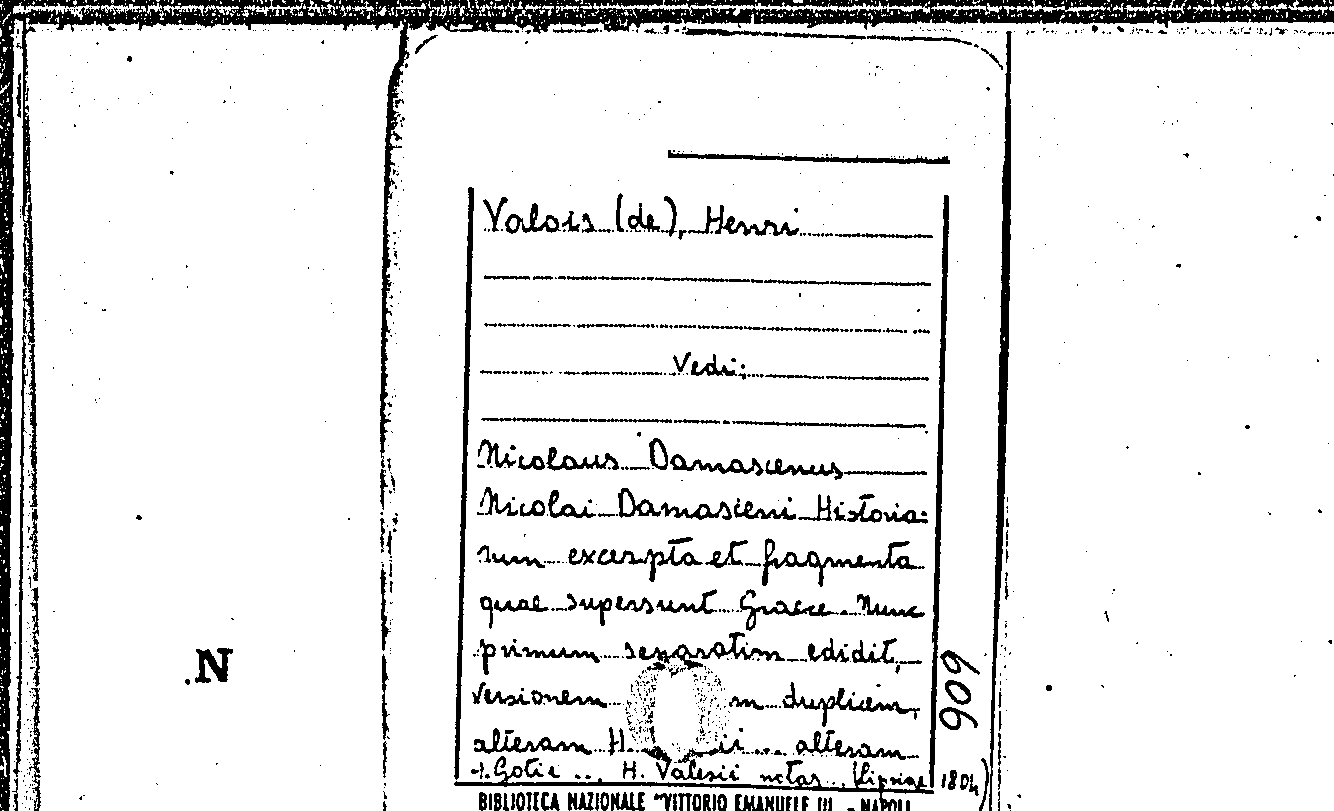 Valois (de), Henri
Vedi:
Nicolaus Damascenus
Nicolai Damasceni Historia:
rum excerpta et fragmenta
quae supersunt Graece. Nunc
primum separatim edidit,
versionem m duplicem,
alteram H. ii ... alteram
Gotii ... H. Valesii notas .. (Lipsiae 1804)
BIBLIOTECA NAZIONALE "VITTORIO EMANUELE III" - NAPOLI
909
N